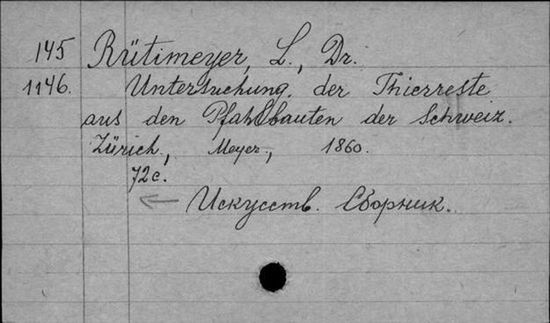 145 Rütimeyer, L., Dr.
1146. Untersuchung. der Thierreste
aus den Pfahlbauten der Schweiz.
Zürich, Meyer, 1860.
72c.
← Искусств. Сборник.